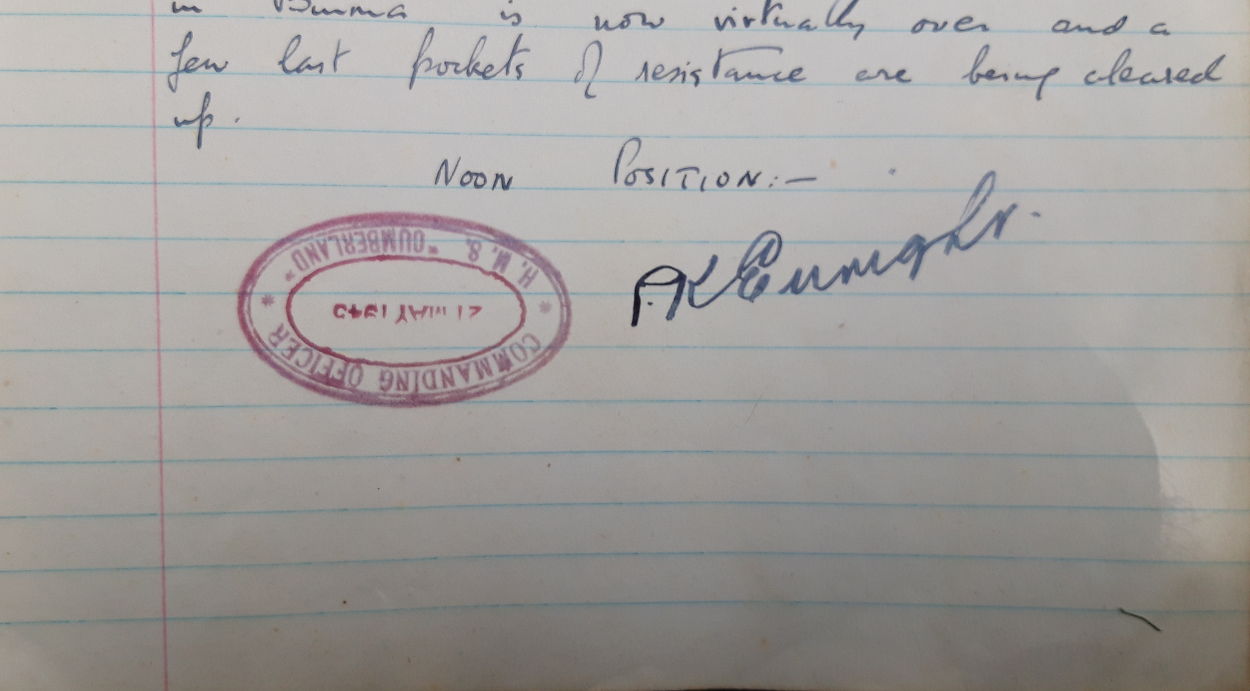 in Burma is now virtually over and a
few last pockets of resistance are being cleared
up.
NOON POSITION:—
P.K. Enright.
COMMANDING OFFICER
* H.M.S. "CUMBERLAND" *
21 MAY 1945